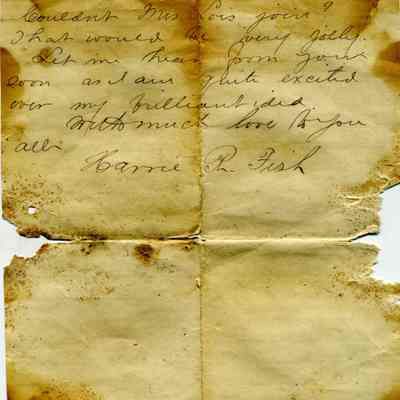 Couldn't Miss Lois join?
That would be very jolly.
Let me hear from you
soon as I am quite excited
over my brilliant idea.
With much love to you
all.
Harrie R. Fish